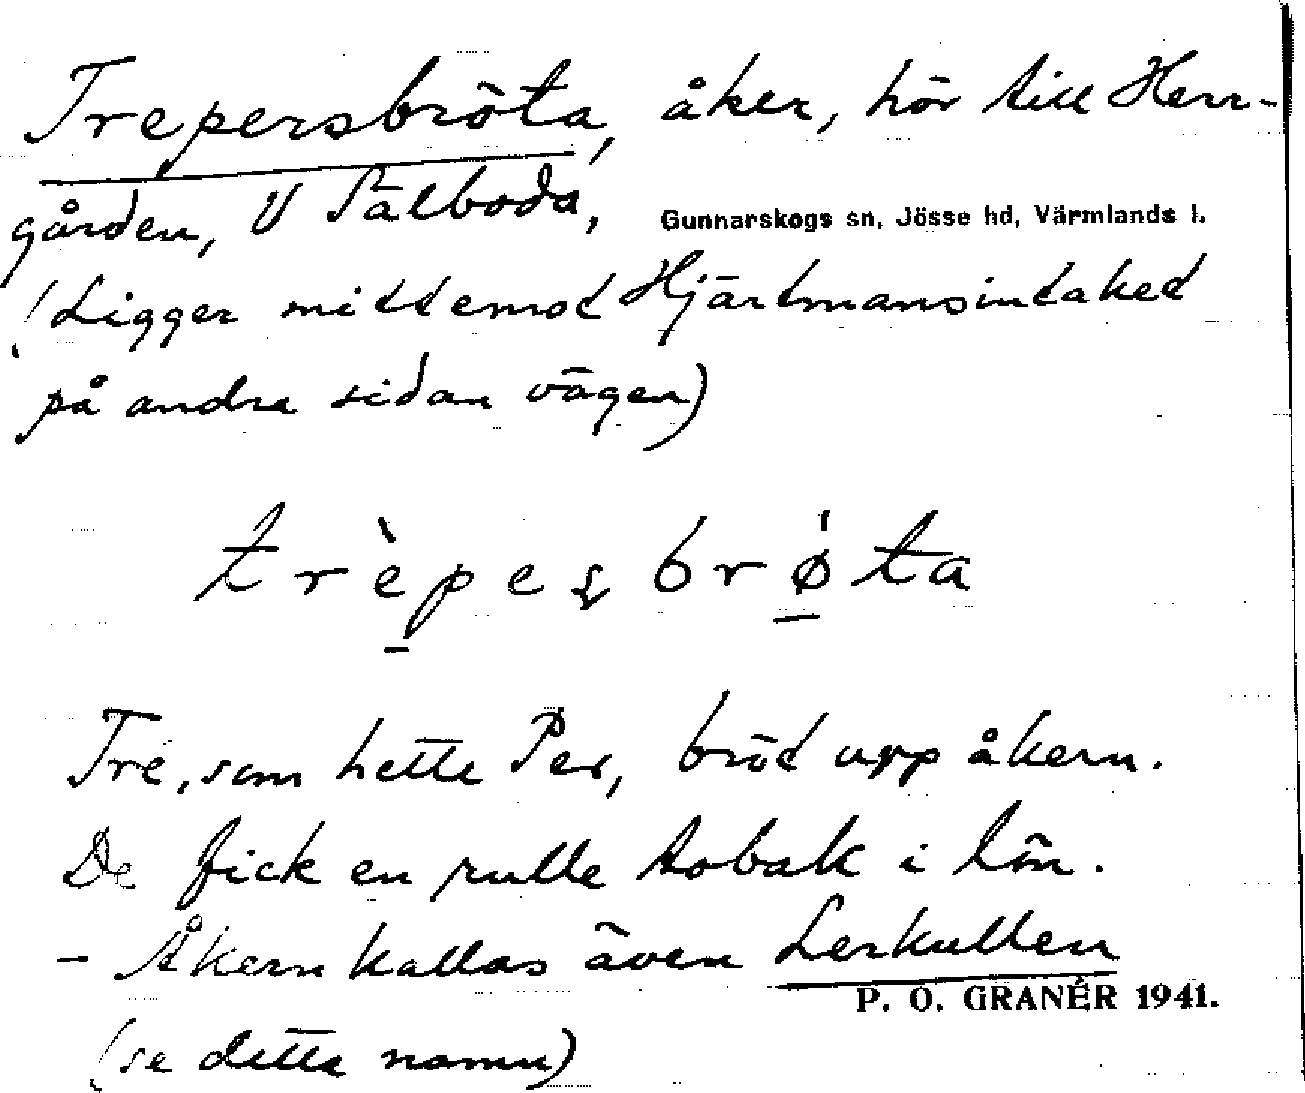 Trepersbröta, åker, hör till Herr-
gården, V Sälboda,
Gunnarskogs sn, Jösse hd, Värmlands l.
(Ligger mittemot Hjärtmansintaket
på andra sidan vägen)
trèpeʂbrǿta
Tre, som hette Per, bröt upp åkern.
De fick en rulle tobak i lön.
- Åkern kallas även Lerkullen
P. O. GRANÉR 1941.
(se detta namn)